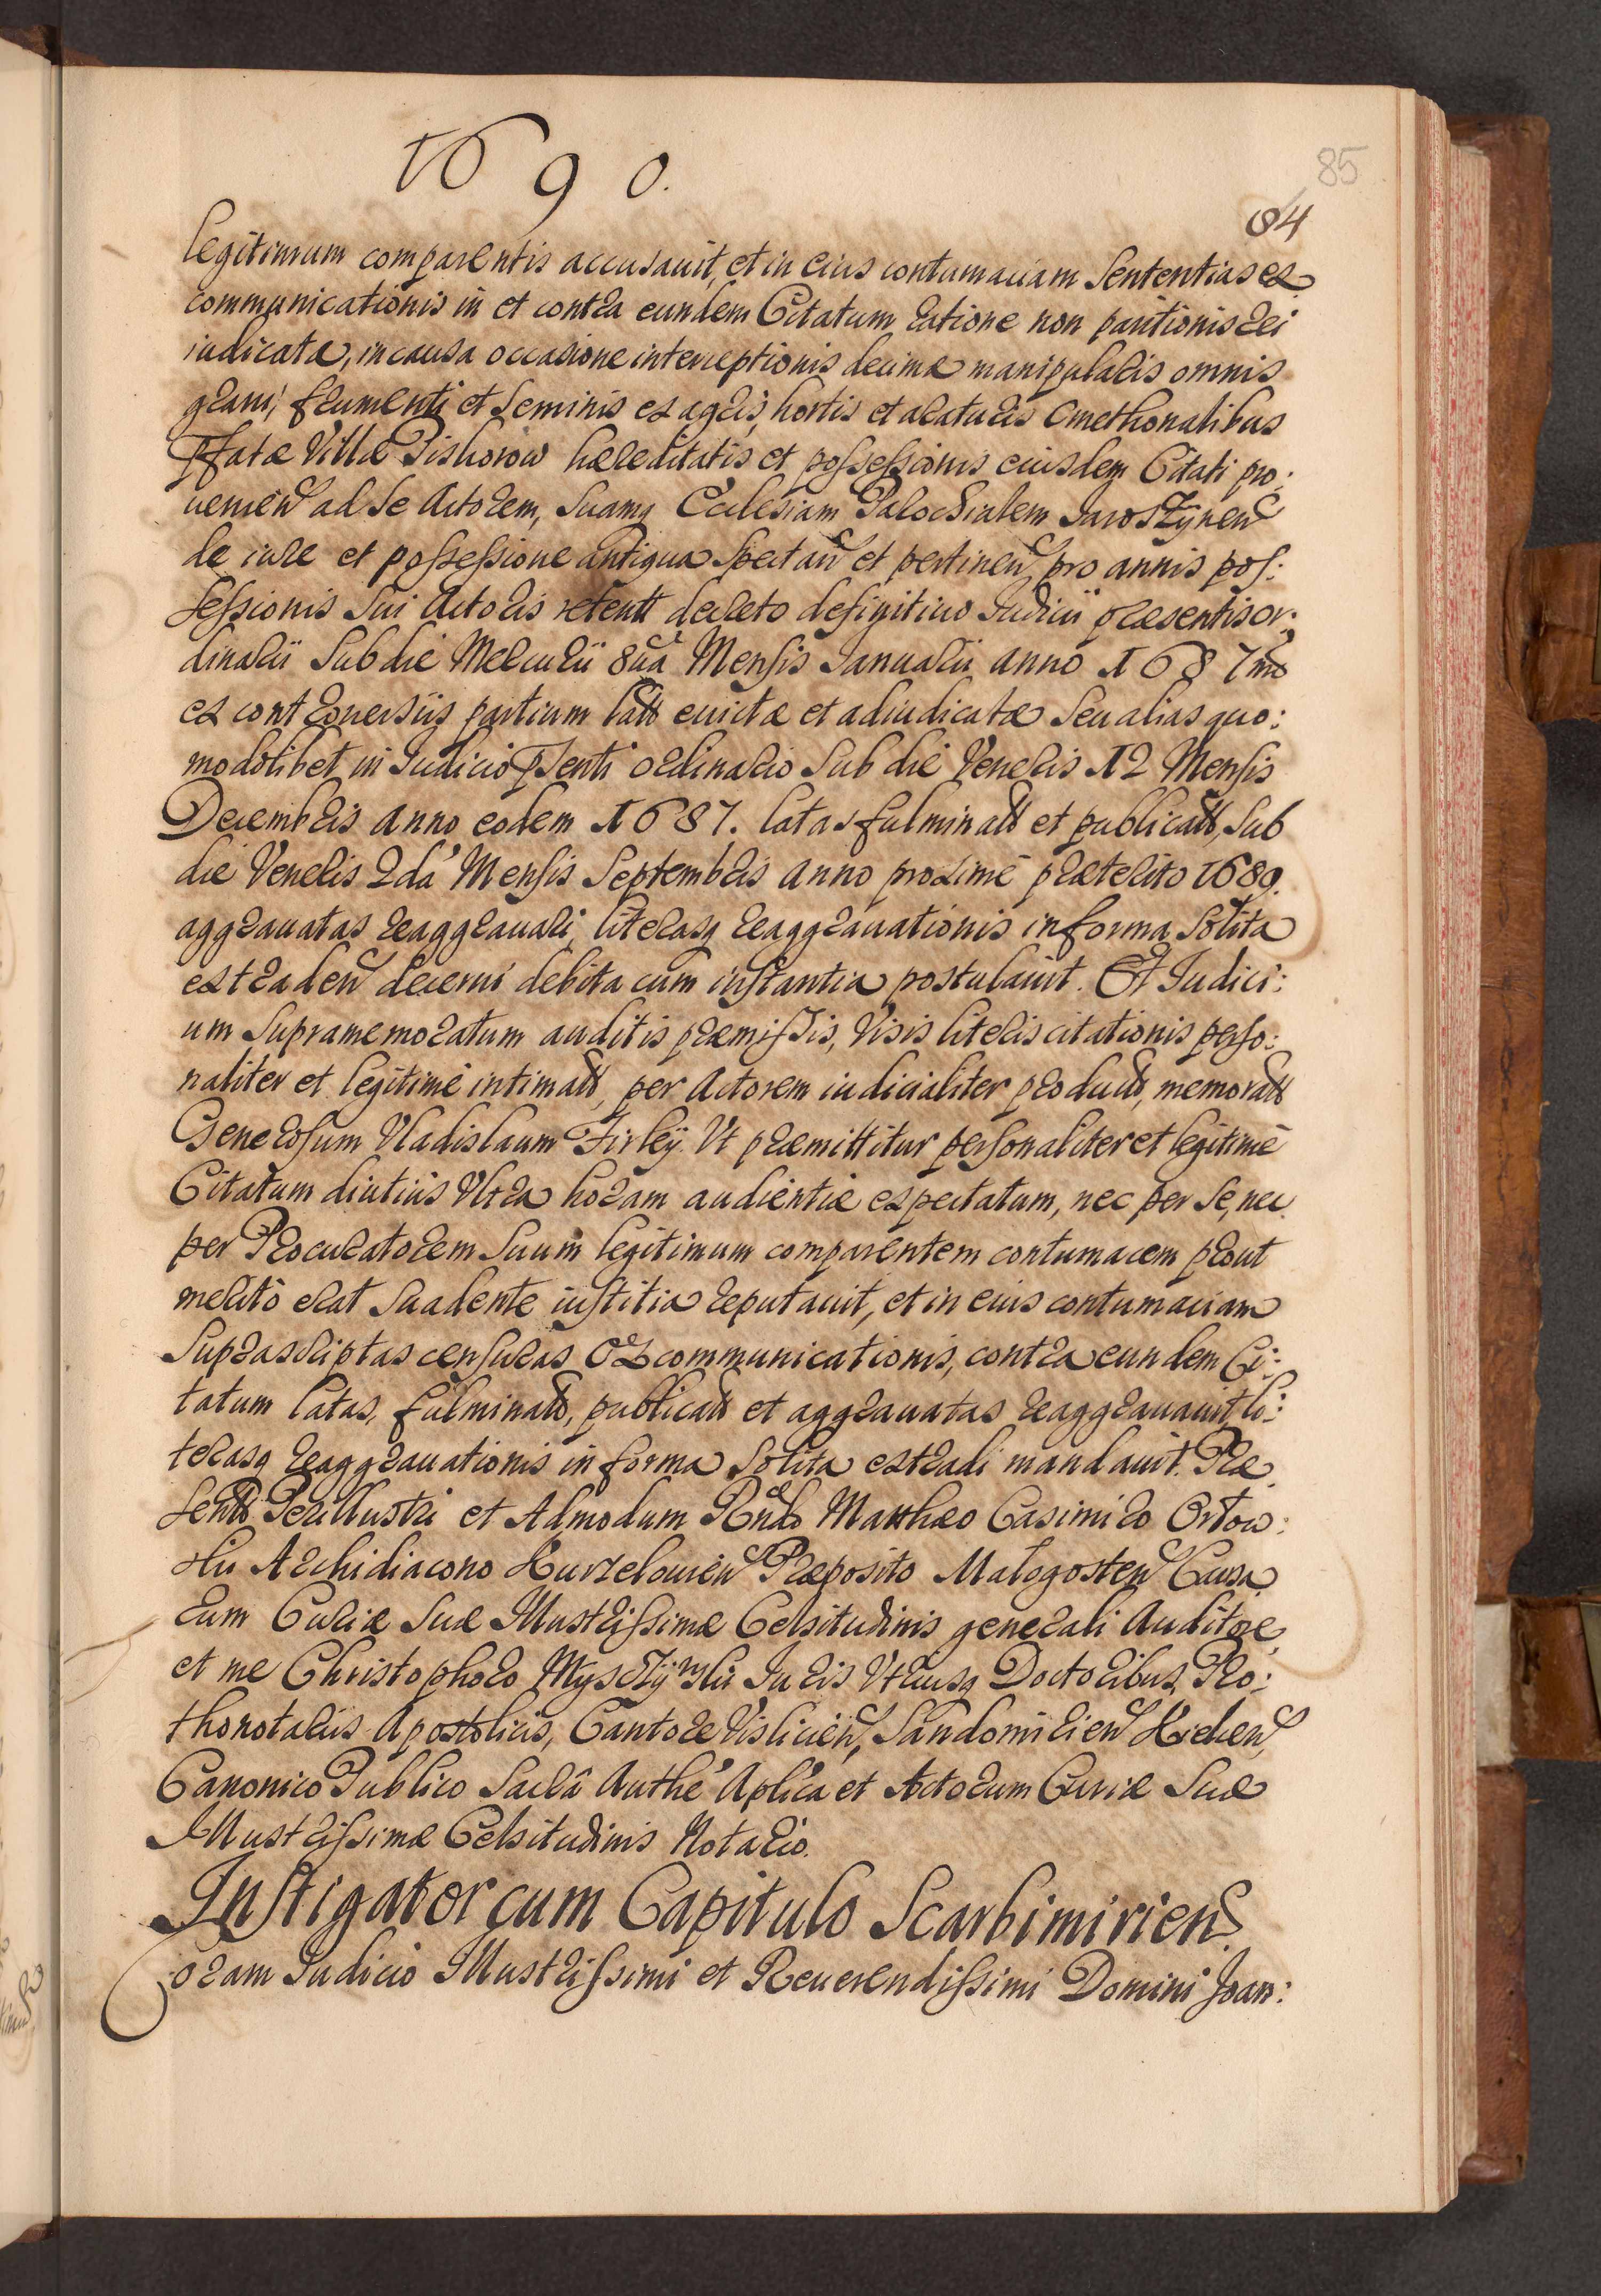 1690.
85
84
legitimum comparentis accusauit, et in eius contumaciam Sententias ex
communicationis in et contra eundem Citatum ratione non paritionis rei
iudicatæ, in causa occasione interceptionis decimæ manipularis omnis
grani, frumenti et Seminis ex agris, hortis et araturis Cmethonalibus
pfatæ Villæ Piskorow hæreditatis et possessionis eiusdem Citati pro:
uenien ad Se Actorem, Suamq Ecclesiam Parochialem Jaroszynen
de iure et possessione antiqua Spectan et pertinen pro annis pos:
sessionis Sui Actoris retent decreto definitiuo Iudicii præsentis or:
dinarii Sub die Mercurii 8ua Mensis Januarii anno 1687mo
ex controuersiis partium lat euictæ et adiudicatæ Seu alias quo:
modolibet in Iudicio psenti ordinario Sub die Veneris 12 Mensis
Decembris anno eodem 1687. latas fulminat et publicat, Sub
die Veneris 2da Mensis Septembris anno proximè præterito 1689.
aggrauatas reaggrauari, literasq reaggrauationis in forma Solita
extraden decerni debita cum instantia postulauit. Et Iudici:
um Supramemoratum auditis præmissis, Visis literis citationis perso:
naliter et legitimè intimat, per Actorem iudicialiter product, memorat
Generosum Vladislaum Firleÿ Vt præmittitur personaliter et legitimè
Citatum diutius Vltra horam audientiæ expectatum, nec per Se, nec
per Procuratorem Suum legitimum comparentem contumacem prout
meritò erat Suadente iustitia reputauit, et in eius contumaciam
Suprascriptas censuras Excommunicationis, contra eundem Ci:
tatum latas, fulminat, publicat et aggrauatas reaggrauauit, li:
terasq reaggrauationis in forma Solita extradi mandauit. Præ
sent Perillustri et Admodum Rndo Matthæo Casimiro Ortow:
ski Archidiacono Kurzelouien Præposito Malogosten Causa
rum Curiæ Suæ Illustrissimæ Celsitudinis generali Auditore,
et me Christophoro Myscÿnski Iuris Vtriusq Doctoribus, Pro:
thonotariis Apostolicis, Cantore Vislicien, Sandomirien Kielcen,
Canonico Publico Sacrâ Authe Aplica et Actorum Curiæ Suæ
Illustrissimæ Celsitudinis Notario.
Instigator cum Capitulo Scarbimirien
Coram Iudicio Illustrissimi et Reuerendissimi Domini Joan: